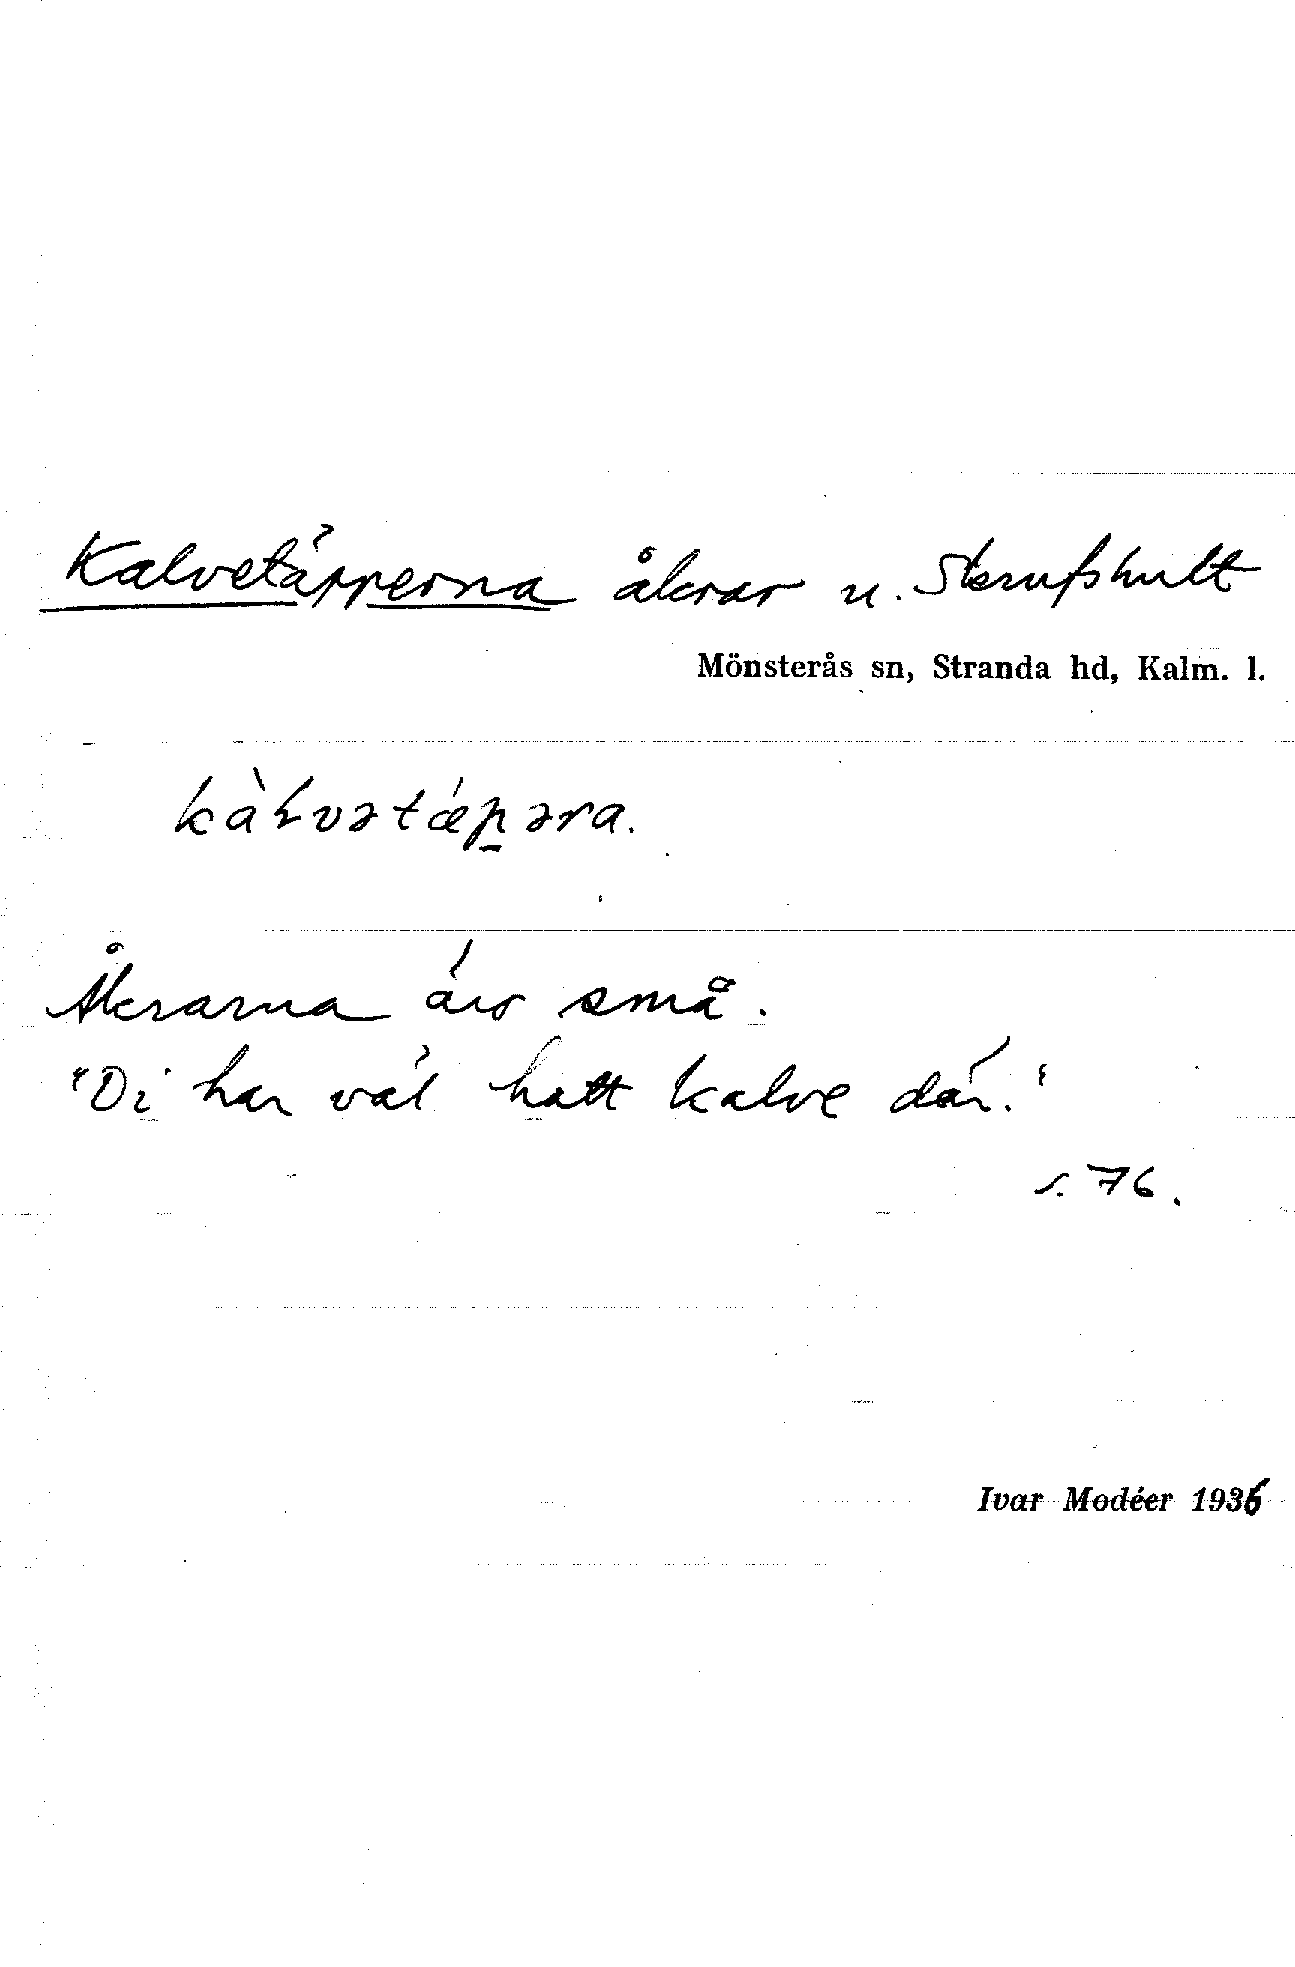 Kalvetäpperna åkrar u. Skrufshult
Mönsterås sn, Stranda hd, Kalm. l.
kàɫvətǽp̠əra.
Åkrarna äro små.
"Di har väl hatt kalve där."
s. 76.
Ivar Modéer 1936